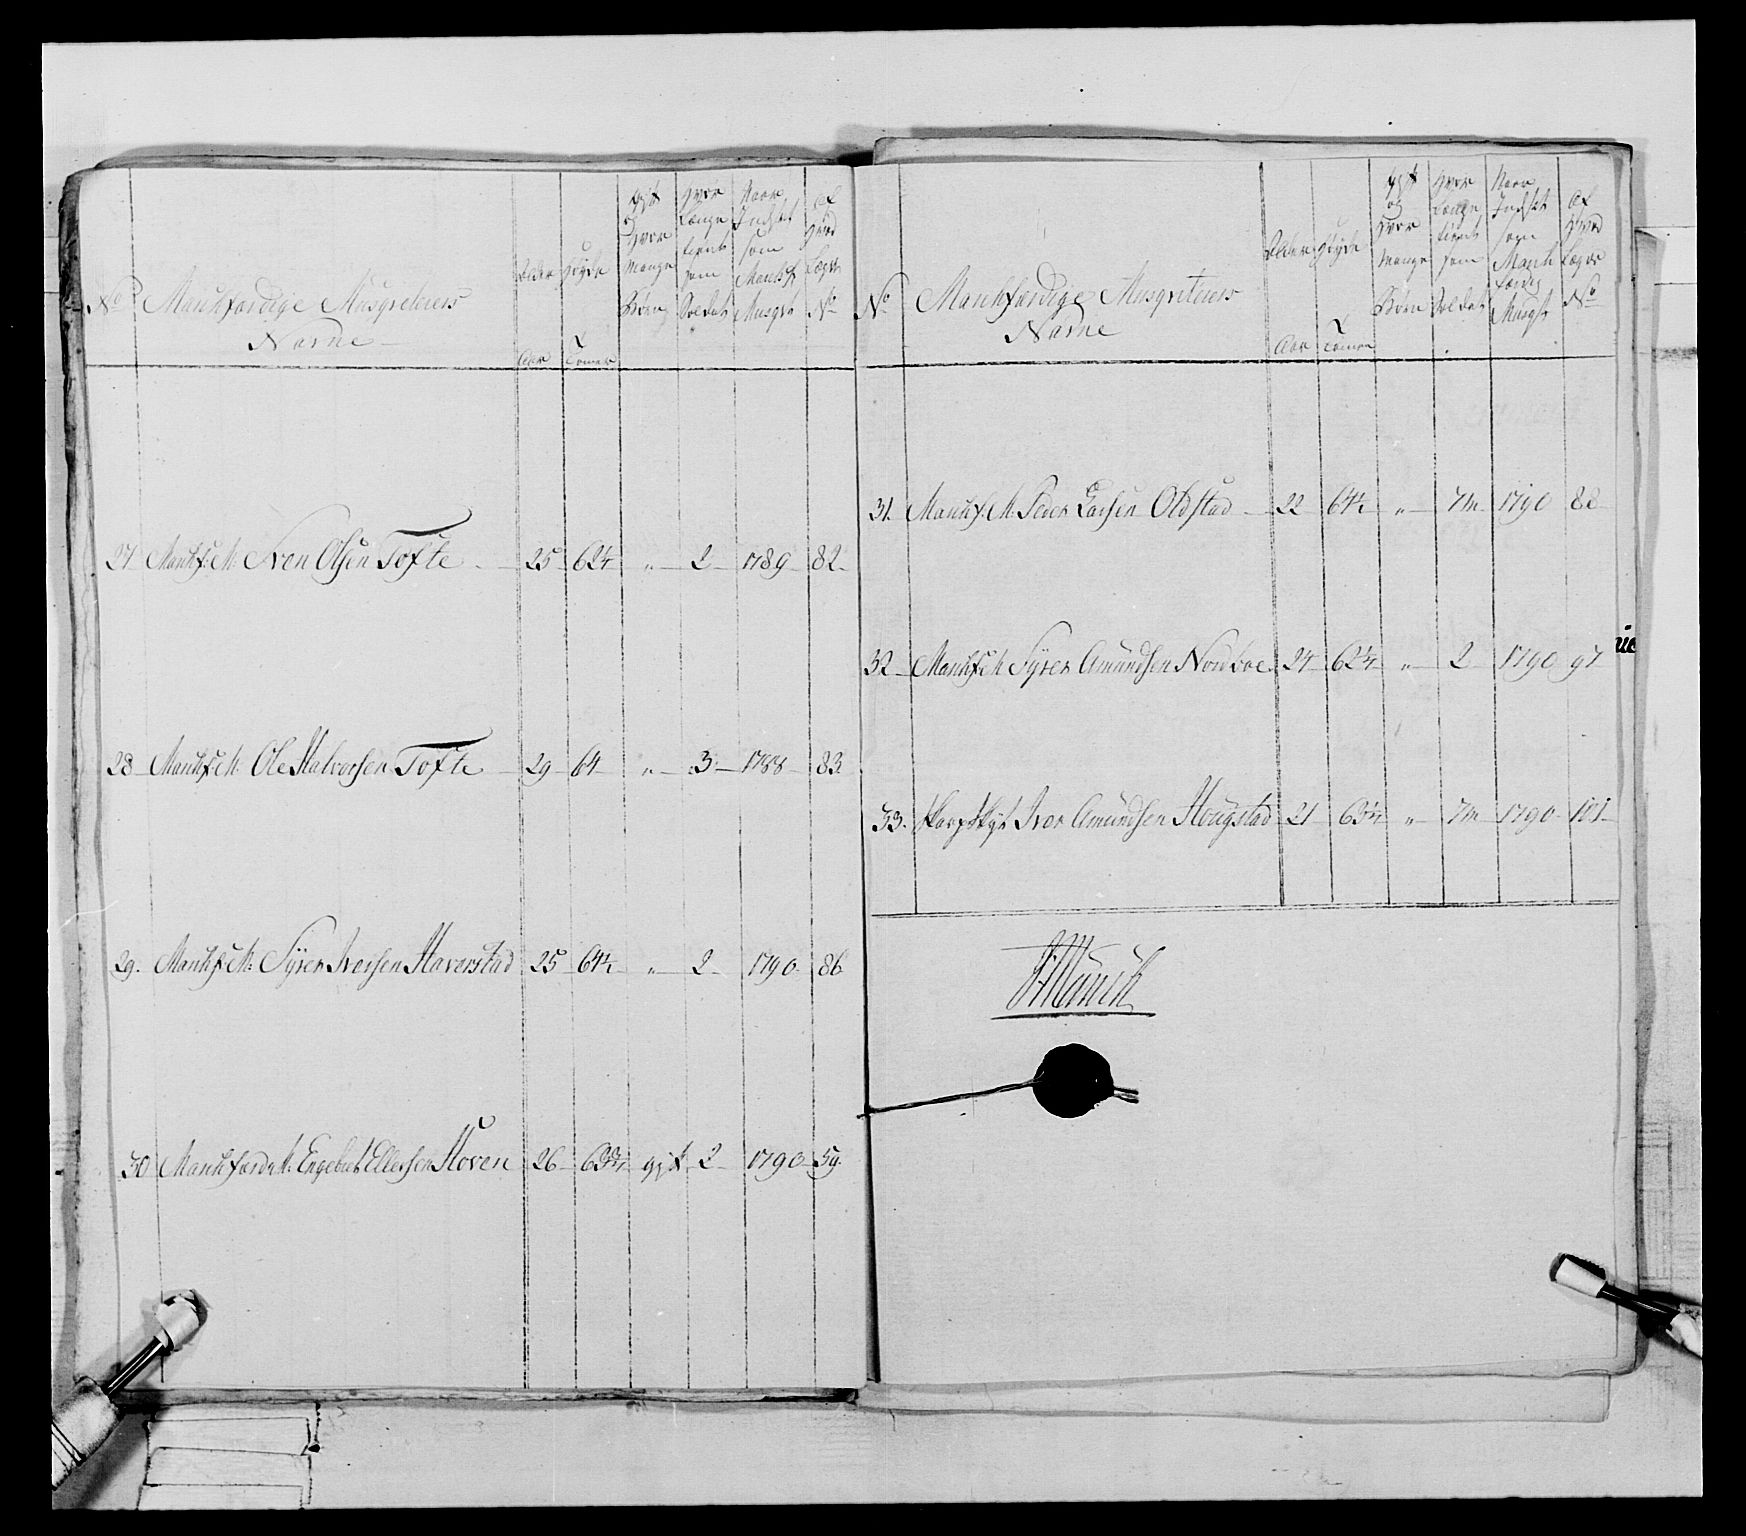 No
Mankfærdige Musqveteurs
Navne
Alder
Aar
Høyde
Tomer
gift
og
Hvor
Mange
Børn
Hvor
Længe
tient
som
Soldat
Naar
Indsat
som
Mankf
Musqt
Af
Hvad
Lægd
No
27 Mankf: M: Sven Olsen Tofte 25 62¼ " 2 1789 82
28 Mankf: M: Ole Halvorsen Tofte 29 64 " 3 1788 83
29. Mankf: M: Syver Iversen Haverstad 25 64½ " 2 1790 86
30 Mankfærd: M: Engebret Ellefsen Hoven 26 63¾ gift 2 1790 59
No
Mankfærdige Musqveteurs
Navne
Alder
Aar
Høyde
Tomer
gift
og
Hvor
Mange
Børn
Hvor
Længe
tient
som
Soldat
Naar
Indsat
som
Mank
færdig
Musqt
Af
Hvad
Lægd
No
31. Mankf: M: Peder Larsen Oldstad 22 64½ " 7m 1790 88
32 Mankf: M Syver Amundsen Nordboe 24 62¼ " 2 1790 97
33. Skarpskyt Iver Amundsen Hougstad 21 63¼ " 7m 1790 101
Munch